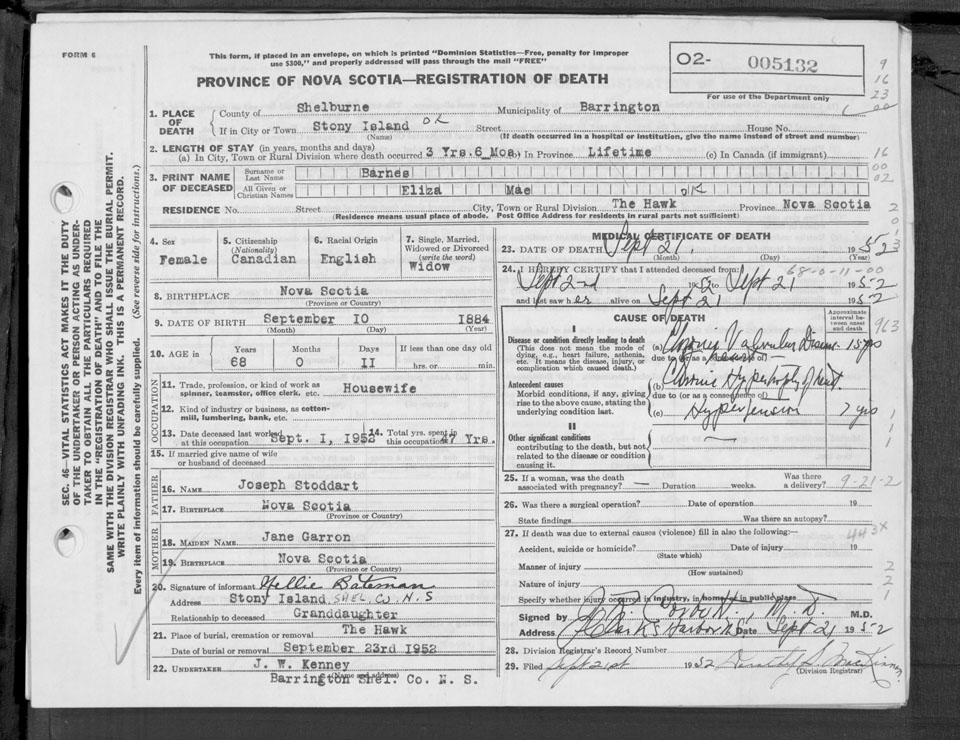 FORM 6
This form, if placed in an envelope, on which is printed "Dominion Statistics—Free, penalty for improper
use $300," and properly addressed will pass through the mail "FREE"
PROVINCE OF NOVA SCOTIA—REGISTRATION OF DEATH
O2- 005132
For use of the Department only
9
16
23
00
16
00
02
SEC. 46 VITAL STATISTICS ACT MAKES IT THE DUTY
OF THE UNDERTAKER OR PERSON ACTING AS UNDER-
TAKER TO OBTAIN ALL THE PARTICULARS REQUIRED
IN THE "REGISTRATION OF DEATH" AND TO FILE THE
SAME WITH THE DIVISION REGISTRAR WHO SHALL ISSUE THE BURIAL PERMIT.
WRITE PLAINLY WITH UNFADING INK. THIS IS A PERMANENT RECORD.
Every item of information should be carefully supplied. (See reverse side for instructions.)
1. PLACE OF DEATH
County of Shelburne Municipality of Barrington
If in City or Town Stony Island OK Street House No.
(Name) (If death occurred in a hospital or institution, give the name instead of street and number)
2. LENGTH OF STAY (in years, months and days)
(a) In City, Town or Rural Division where death occurred 3 Yrs. 6 Mos. (b) In Province Lifetime (c) In Canada (if immigrant)
3. PRINT NAME OF DECEASED
Surname or Last Name Barnes
All Given or Christian Names Eliza Mae OK
RESIDENCE No. Street City, Town or Rural Division The Hawk Province Nova Scotia
(Residence means usual place of abode. Post Office Address for residents in rural parts not sufficient)
4. Sex
Female
5. Citizenship
(Nationality)
Canadian
6. Racial Origin
English
7. Single, Married,
Widowed or Divorced
(write the word)
Widow
8. BIRTHPLACE Nova Scotia
(Province or Country)
9. DATE OF BIRTH September 10 1884
(Month) (Day) (Year)
10. AGE in
Years Months Days If less than one day old
68 0 11 hrs. or min.
OCCUPATION
11. Trade, profession, or kind of work as
spinner, teamster, office clerk, etc. Housewife
12. Kind of industry or business, as cotton-
mill, lumbering, bank, etc.
13. Date deceased last worked
at this occupation Sept. 1, 1952
14. Total yrs. spent in
this occupation 47 Yrs.
15. If married give name of wife
or husband of deceased
FATHER
16. NAME Joseph Stoddart
17. BIRTHPLACE Nova Scotia
(Province or Country)
MOTHER
18. MAIDEN NAME Jane Garron
19. BIRTHPLACE Nova Scotia
(Province or Country)
20. Signature of informant Nellie Bateman
Address Stony Island SHEL. CO. N.S
Relationship to deceased Granddaughter
21. Place of burial, cremation or removal The Hawk
Date of burial or removal September 23rd 1952
22. UNDERTAKER J. W. Kenney
(Name and address)
Barrington Shel. Co. N. S.
MEDICAL CERTIFICATE OF DEATH
23. DATE OF DEATH Sept 21. 1952
(Month) (Day) (Year)
68-0-11-00
24. I HEREBY CERTIFY that I attended deceased from:
Sept 2nd 1952 to Sept 21 1952
and last saw her alive on Sept 21 1952
CAUSE OF DEATH
Approximate interval between onset and death
963
I
Disease or condition directly leading to death
(This does not mean the mode of
dying, e.g., heart failure, asthenia,
etc. It means the disease, injury, or
complication which caused death.)
(a) Chronic Valvular Disease 15 yrs
due to (or as a consequence of)
Antecedent causes
Morbid conditions, if any, giving
rise to the above cause, stating the
underlying condition last.
(b) Chronic Hypertrophy of heart.
due to (or as a consequence of)
(c) Hypertension 7 yrs
II
Other significant conditions
contributing to the death, but not
related to the disease or condition
causing it.
25. If a woman, was the death
associated with pregnancy? — Duration weeks. Was there
a delivery? 9-21-2
26. Was there a surgical operation? Date of operation 19
State findings Was there an autopsy?
27. If death was due to external causes (violence) fill in also the following:—
443X
Accident, suicide or homicide? Date of injury 19
(State which)
Manner of injury
(How sustained)
Nature of injury
Specify whether injury occurred in industry, in home or in public place
Signed by M.D. M.D.
Address Clark's Harbour Date Sept 21 1952
28. Division Registrar's Record Number
29. Filed Sept 21st 1952
(Division Registrar)